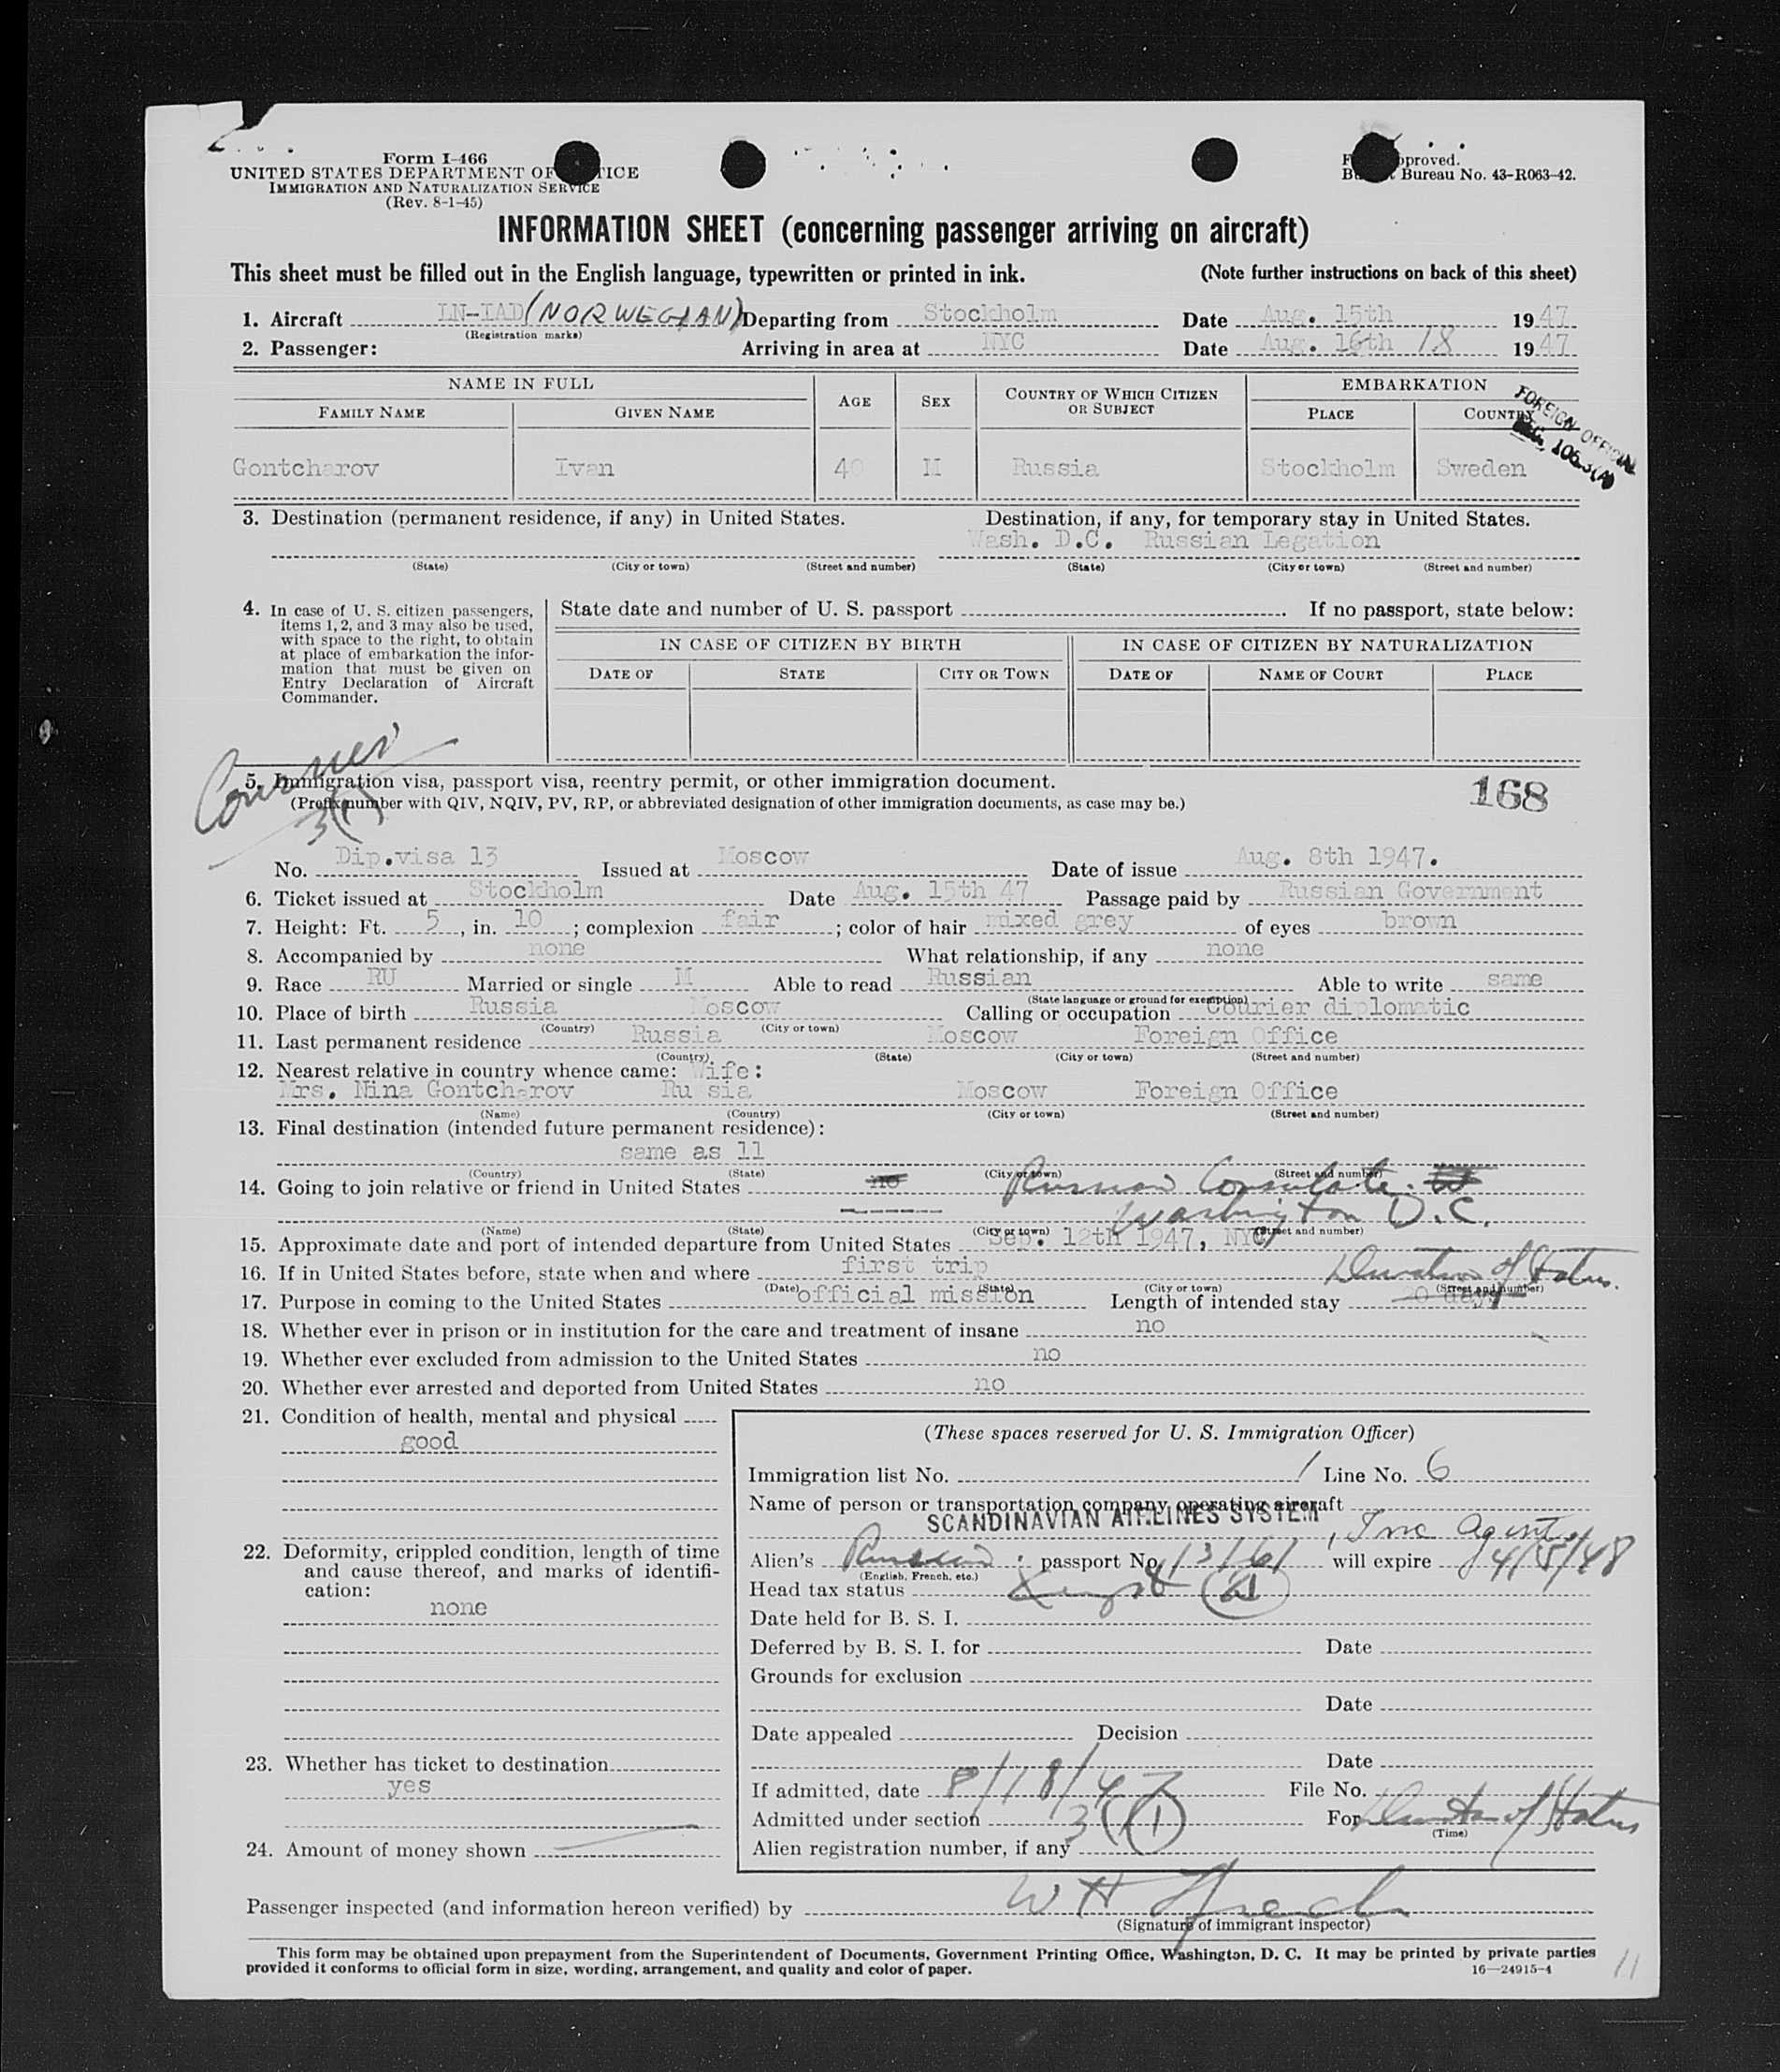 Form I-466
UNITED STATES DEPARTMENT OF JUSTICE
IMMIGRATION AND NATURALIZATION SERVICE
(Rev. 8-1-45)
Approved.
Bureau No. 43-R063-42.
INFORMATION SHEET (concerning passenger arriving on aircraft)
This sheet must be filled out in the English language, typewritten or printed in ink. (Note further instructions on back of this sheet)
1. Aircraft LN-IAD (NORWEGIAN) Departing from Stockholm Date Aug. 15th 1947
(Registration marks)
2. Passenger: Arriving in area at NYC Date Aug. 16th 18 1947
NAME IN FULL AGE SEX COUNTRY OF WHICH CITIZEN OR SUBJECT EMBARKATION
FAMILY NAME GIVEN NAME PLACE COUNTRY
FOREIGN OFFICIAL
Gontcharov Ivan 40 M Russia Stockholm Sweden
3. Destination (permanent residence, if any) in United States. Destination, if any, for temporary stay in United States.
Wash. D.C. Russian Legation
(State) (City or town) (Street and number) (State) (City or town) (Street and number)
4. In case of U. S. citizen passengers, items 1, 2, and 3 may also be used, with space to the right, to obtain at place of embarkation the information that must be given on Entry Declaration of Aircraft Commander.
State date and number of U. S. passport If no passport, state below:
IN CASE OF CITIZEN BY BIRTH IN CASE OF CITIZEN BY NATURALIZATION
DATE OF STATE CITY OR TOWN DATE OF NAME OF COURT PLACE
Courier
3(1)
5. Immigration visa, passport visa, reentry permit, or other immigration document.
(Prefix number with QIV, NQIV, PV, RP, or abbreviated designation of other immigration documents, as case may be.)
168
No. Dip.visa 13 Issued at Moscow Date of issue Aug. 8th 1947.
6. Ticket issued at Stockholm Date Aug. 15th 47 Passage paid by Russian Government
7. Height: Ft. 5, in. 10; complexion fair; color of hair mixed grey of eyes brown
8. Accompanied by none What relationship, if any none
9. Race RU Married or single M Able to read Russian Able to write same
(State language or ground for exemption)
10. Place of birth Russia Moscow Calling or occupation Courier diplomatic
(Country) (City or town)
11. Last permanent residence Russia Moscow Foreign Office
(Country) (State) (City or town) (Street and number)
12. Nearest relative in country whence came: Wife:
Mrs. Nina Gontcharov Russia Moscow Foreign Office
(Name) (Country) (City or town) (Street and number)
13. Final destination (intended future permanent residence):
same as 11
(Country) (State) (City or town) (Street and number)
14. Going to join relative or friend in United States no Russian Consulate.
Washington D.C.
(Name) (State) (City or town) (Street and number)
15. Approximate date and port of intended departure from United States Sep. 12th 1947, NYC
16. If in United States before, state when and where first trip
(Date) (State) (City or town) (Street and number)
Duration of Status.
17. Purpose in coming to the United States official mission Length of intended stay 20 days
18. Whether ever in prison or in institution for the care and treatment of insane no
19. Whether ever excluded from admission to the United States no
20. Whether ever arrested and deported from United States no
21. Condition of health, mental and physical
good
22. Deformity, crippled condition, length of time and cause thereof, and marks of identification:
none
23. Whether has ticket to destination
yes
24. Amount of money shown
(These spaces reserved for U. S. Immigration Officer)
Immigration list No. 1 Line No. 6
Name of person or transportation company operating aircraft
SCANDINAVIAN AIRLINES SYSTEM, Inc Agent
Alien's Russian passport No. 13161 will expire 4/5/48
(English, French, etc.)
Head tax status
Date held for B. S. I.
Deferred by B. S. I. for Date
Grounds for exclusion
Date
Date appealed Decision
Date
If admitted, date 8/18/47 File No.
Admitted under section 3(1) For Duration of Status
(Time)
Alien registration number, if any
Passenger inspected (and information hereon verified) by
(Signature of immigrant inspector)
This form may be obtained upon prepayment from the Superintendent of Documents, Government Printing Office, Washington, D. C. It may be printed by private parties
provided it conforms to official form in size, wording, arrangement, and quality and color of paper. 16—24915-4
11